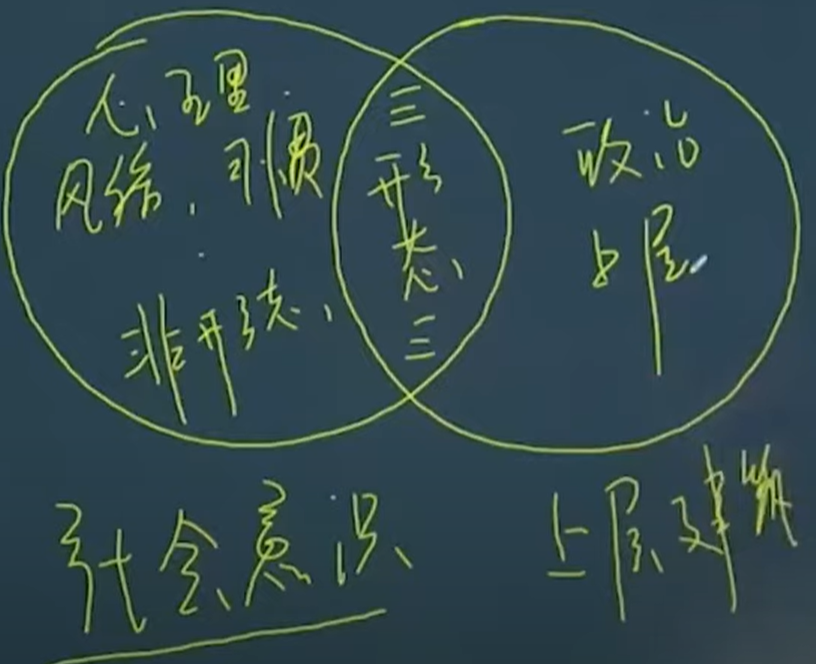 心理
风俗、习惯
非形态、
三
形
态、
三
政治
上层
社会意识
上层建筑